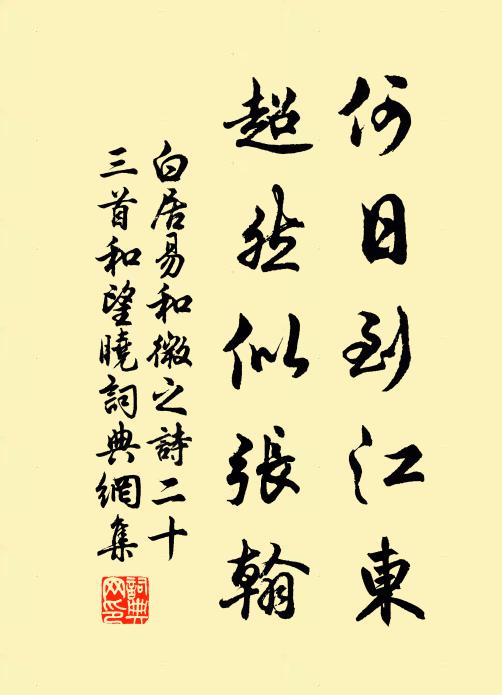 何日到江東
超然似張翰
白居易和微之詩二十
三首和望曉詞典網集
詞典
网印